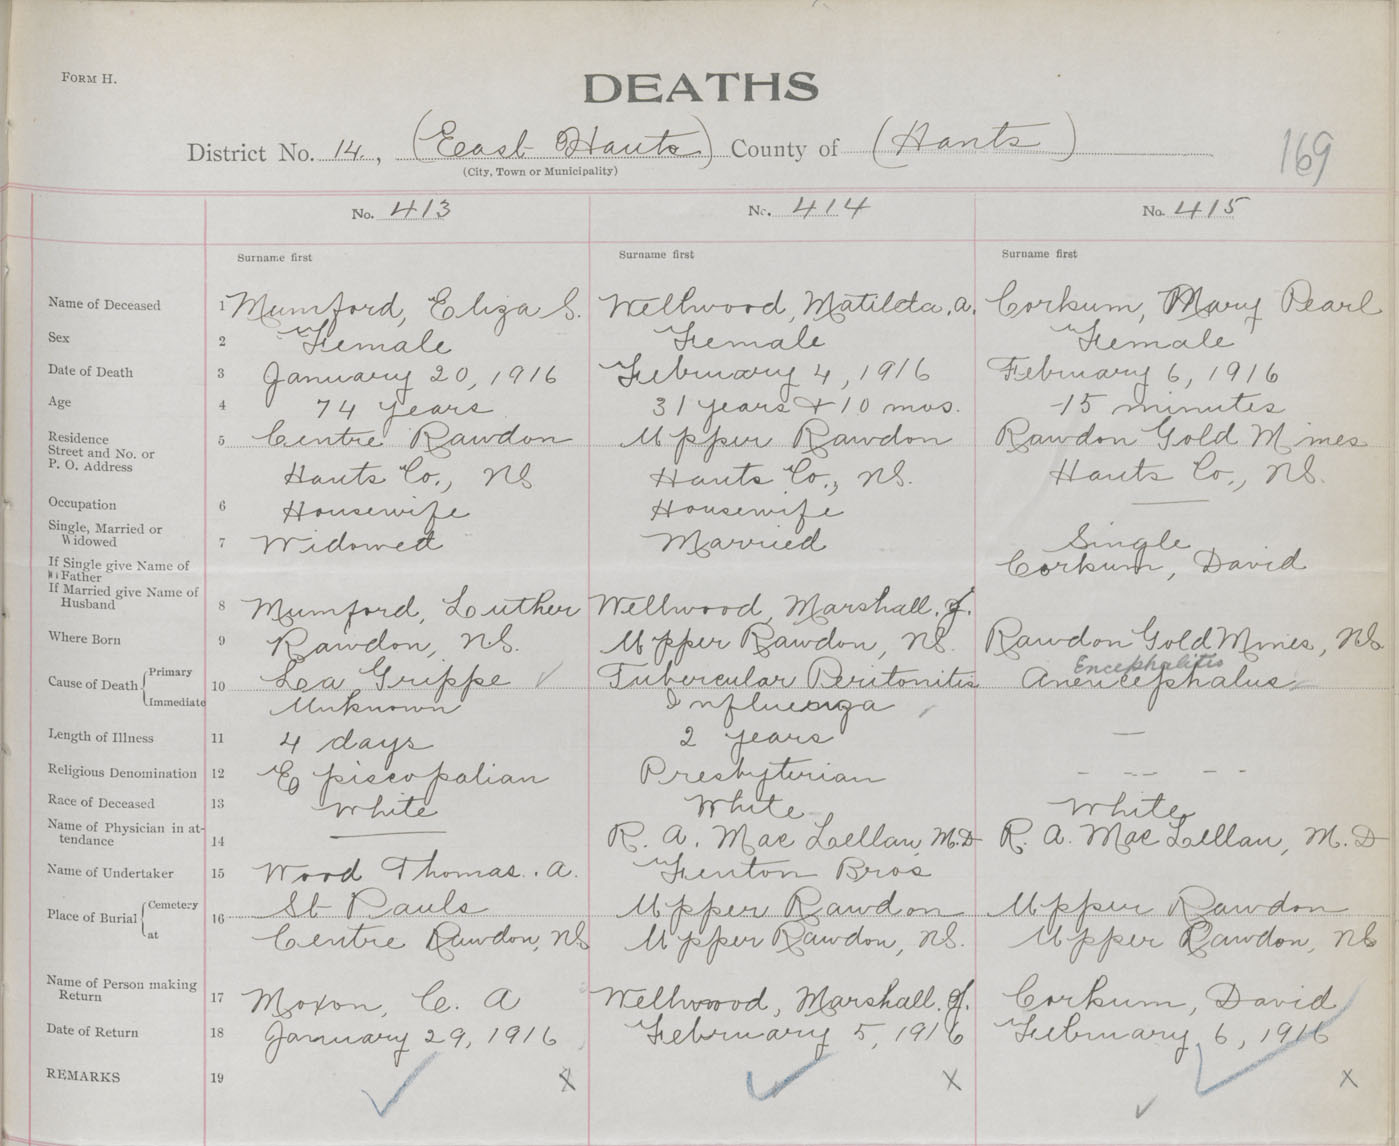 FORM H.
DEATHS
169
District No. 14, (East Hants) County of (Hants)
(City, Town or Municipality)
No. 413 No. 414 No. 415
Surname first Surname first Surname first
Name of Deceased 1 Mumford, Eliza S. Wellwood, Matilda. A. Corkum, Mary Pearl
Sex 2 Female Female Female
Date of Death 3 January 20, 1916 February 4, 1916 February 6, 1916
Age 4 74 years 31 years + 10 mos. 15 minutes
Residence 5 Centre Rawdon Upper Rawdon Rawdon Gold Mines
Street and No. or
P. O. Address Hants Co., NS Hants Co., NS. Hants Co., NS.
Occupation 6 Housewife Housewife —
Single, Married or
Widowed 7 Widowed Married Single
If Single give Name of
Father Corkum, David
If Married give Name of
Husband 8 Mumford, Luther Wellwood, Marshall. J.
Where Born 9 Rawdon, NS. Upper Rawdon, NS. Rawdon Gold Mines, NS
Encephalitis
Cause of Death { Primary 10 La Grippe Tubercular Peritonitis Anencephalus
Immediate Unknown Influenza
Length of Illness 11 4 days 2 years —
Religious Denomination 12 Episcopalian Presbyterian - -- - -
Race of Deceased 13 White White White
Name of Physician in at-
tendance 14 — R. A. Mac Lellan, M.D R. A. Mac Lellan, M. D
Name of Undertaker 15 Wood Thomas. A. Fenton Bros
Place of Burial { Cemetery 16 St Pauls Upper Rawdon Upper Rawdon
at Centre Rawdon, NS Upper Rawdon, NS. Upper Rawdon, NS
Name of Person making
Return 17 Moxon, C. A Wellwood, Marshall. J. Corkum, David
Date of Return 18 January 29, 1916 February 5, 1916 February 6, 1916
REMARKS 19 ✓ X ✓ X ✓ ✓ X